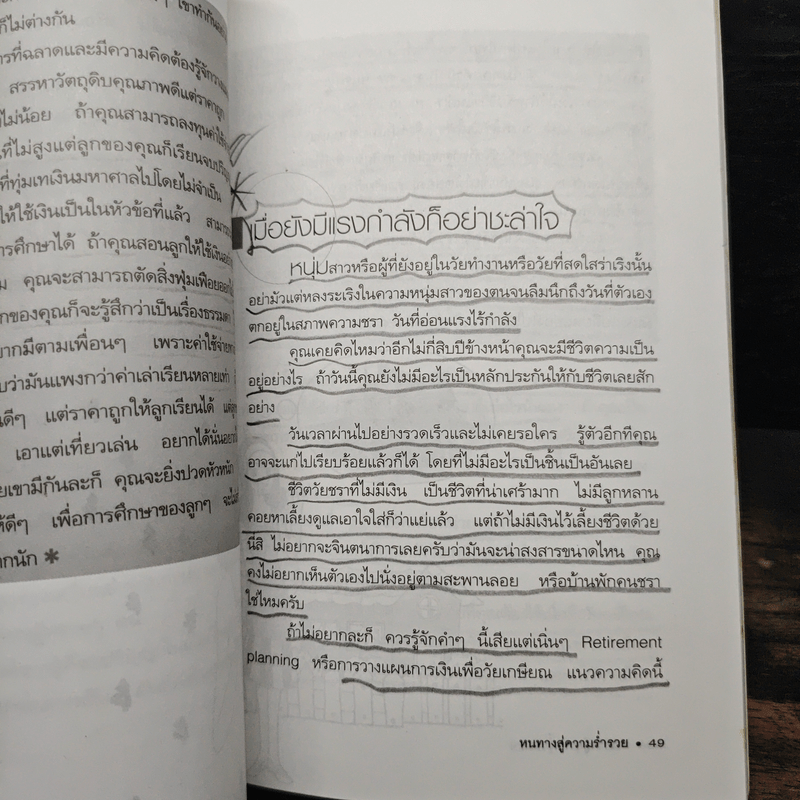 เขาทำกัน
ก็ไม่ต่างกัน
ที่ฉลาดและมีความคิดต้องรู้จัก
สรรหาวัตถุดิบคุณภาพดีแต่ราคาถูก
ไม่น้อย ถ้าคุณสามารถลงทุนค่าใช้
ที่ไม่สูงแต่ลูกของคุณก็เรียนจบ
ที่ทุ่มเทเงินมหาศาลไปโดยไม่จำเป็น
ให้ใช้เงินเป็นในหัวข้อที่แล้ว
การศึกษาได้ ถ้าคุณสอนลูกให้ใช้เงิน
คุณจะสามารถตัดสิ่งฟุ่มเฟือย
ของคุณก็จะรู้สึกว่าเป็นเรื่องธรรมดา
มีตามเพื่อนๆ เพราะค่าใช้จ่าย
ว่ามันแพงกว่าค่าเล่าเรียนหลายเท่า
ดีๆ แต่ราคาถูกให้ลูกเรียนได้
เอาแต่เที่ยวเล่น อยากได้นั่น
เขามีกันละก็ คุณจะยิ่งปวดหัวหนัก
ดีๆ เพื่อการศึกษาของลูกๆ
นัก
เมื่อยังมีแรงกำลังก็อย่าชะล่าใจ
หนุ่มสาวหรือผู้ที่ยังอยู่ในวัยทำงานหรือวัยที่สดใสร่าเริงนั้น
อย่ามัวแต่หลงระเริงในความหนุ่มสาวของตนจนลืมนึกถึงวันที่ตัวเอง
ตกอยู่ในสภาพความชรา วันที่อ่อนแรงไร้กำลัง
คุณเคยคิดไหมว่าอีกไม่กี่สิบปีข้างหน้าคุณจะมีชีวิตความเป็น
อยู่อย่างไร ถ้าวันนี้คุณยังไม่มีอะไรเป็นหลักประกันให้กับชีวิตเลยสัก
อย่าง
วันเวลาผ่านไปอย่างรวดเร็วและไม่เคยรอใคร รู้ตัวอีกทีคุณ
อาจจะแก่ไปเรียบร้อยแล้วก็ได้ โดยที่ไม่มีอะไรเป็นชิ้นเป็นอันเลย
ชีวิตวัยชราที่ไม่มีเงิน เป็นชีวิตที่น่าเศร้ามาก ไม่มีลูกหลาน
คอยหาเลี้ยงดูแลเอาใจใส่ก็ว่าแย่แล้ว แต่ถ้าไม่มีเงินไว้เลี้ยงชีวิตด้วย
นี่สิ ไม่อยากจะจินตนาการเลยครับว่ามันจะน่าสงสารขนาดไหน คุณ
คงไม่อยากเห็นตัวเองไปนั่งอยู่ตามสะพานลอย หรือบ้านพักคนชรา
ใช่ไหมครับ
ถ้าไม่อยากละก็ ควรรู้จักคำๆ นี้เสียแต่เนิ่นๆ Retirement
planning หรือการวางแผนการเงินเพื่อวัยเกษียณ แนวความคิดนี้
หนทางสู่ความร่ำรวย • 49